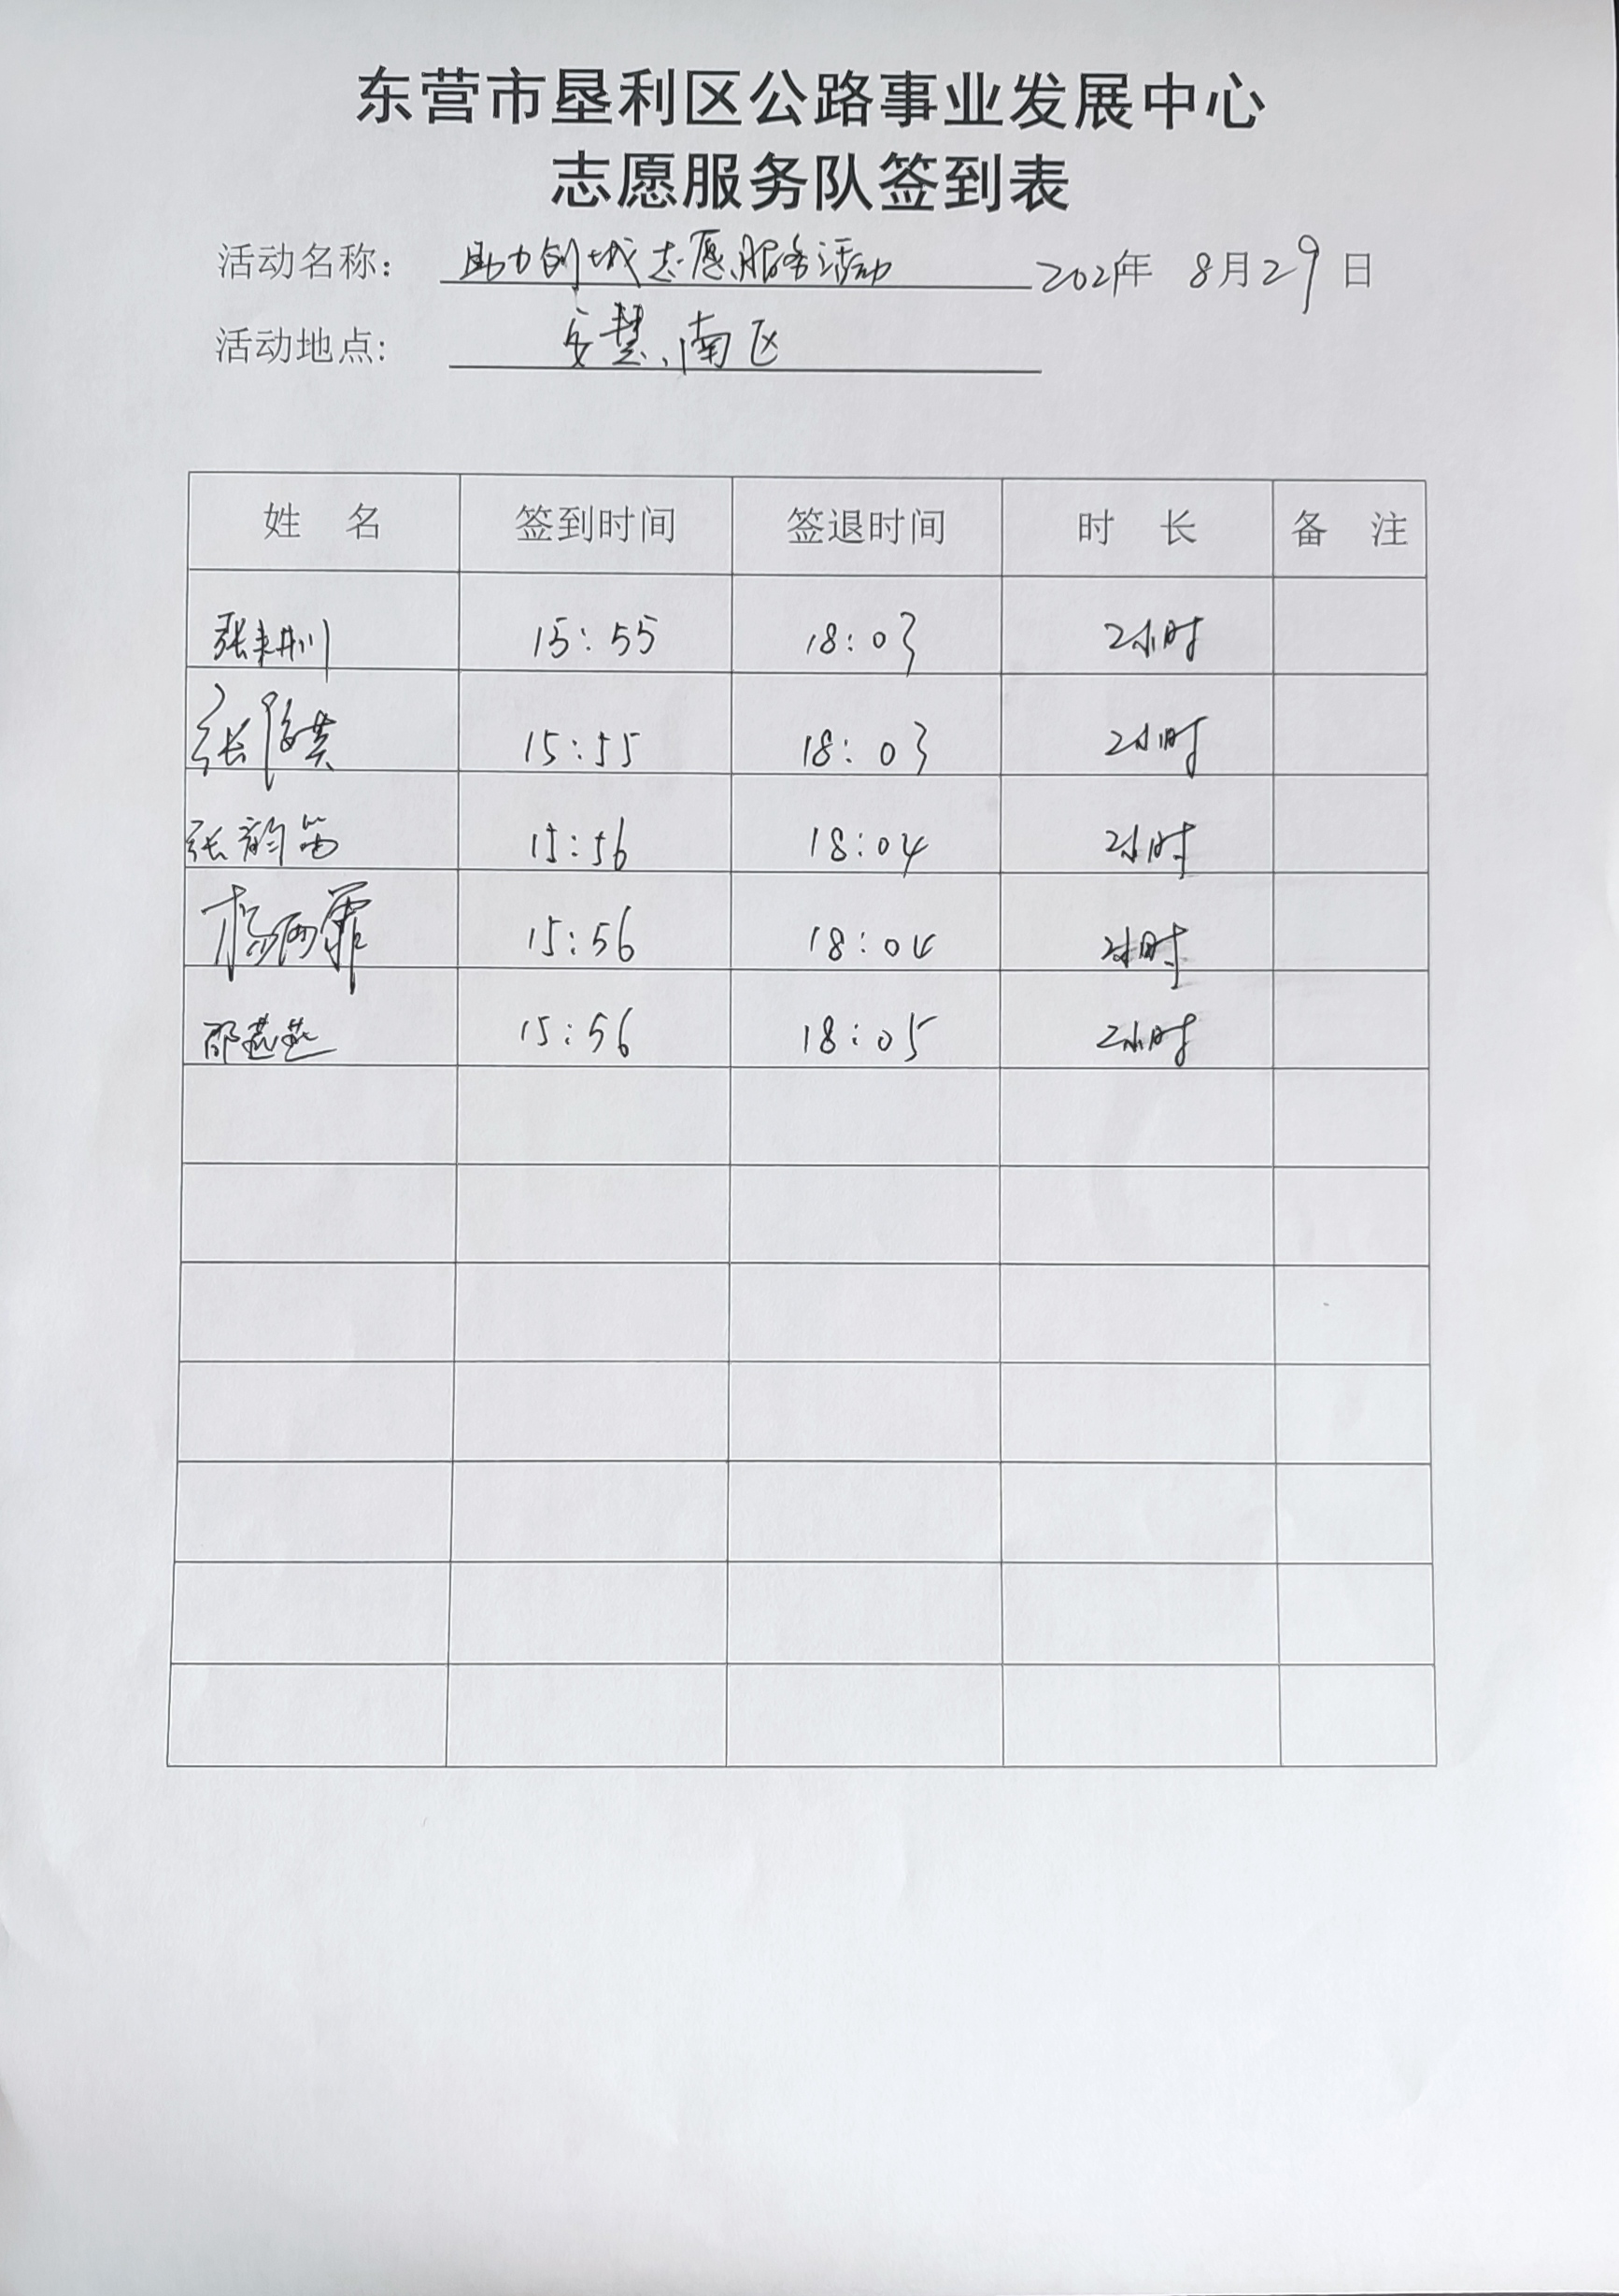 东营市垦利区公路事业发展中心
志愿服务队签到表
活动名称: 助力创城志愿服务活动 2021年 8月29日
活动地点: 安慧、南区
姓 名 签到时间 签退时间 时 长 备 注
张 15:55 18:03 2小时
张 15:55 18:03 2小时
张韵笛 15:56 18:04 2小时
杨雨霏 15:56 18:04 2小时
邵燕燕 15:56 18:05 2小时